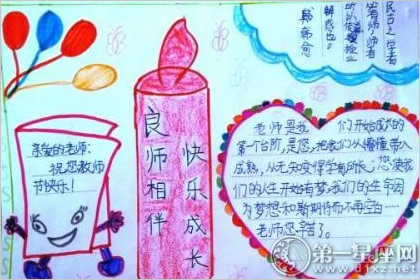 古之学者
必有师。师者
所以传道授业
解惑也。
亲爱的老师:
祝您教师
节快乐!
良师相伴
快乐成长
老师是我们开始成长的
第一个台阶,是您,把我们从懵懂带入
成熟,从无知变得学有所长;您使我
们的人生开始有梦,我们的生命因
为梦想和期待而不再空白……
老师您辛苦了。
第一星座网
www.d1xz.net